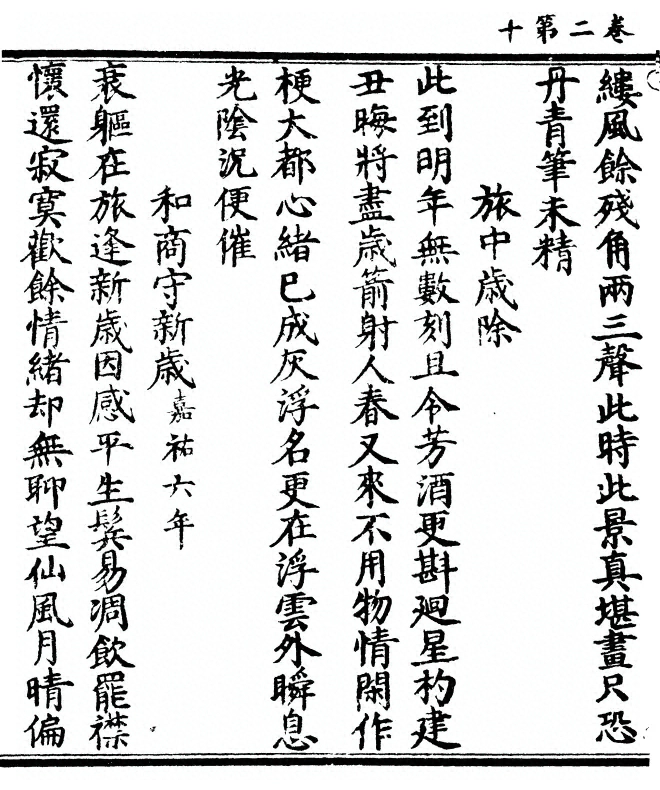 卷二第十
縷風餘殘角兩三聲此時此景真堪畫尺恐
丹青筆未精
旅中歲除
此到明年無數刻且令芳酒更斟廻星杓建
丑晦將盡歲箭射人春又來不用物情閑作
梗大都心緒巳成灰浮名更在浮雲外瞬息
光陰況便催
和商守新歲嘉祐六年
衰軀在旅逢新歲因感平生鬂易凋飲罷襟
懷還寂寞歡餘情緒却無聊望仙風月晴偏